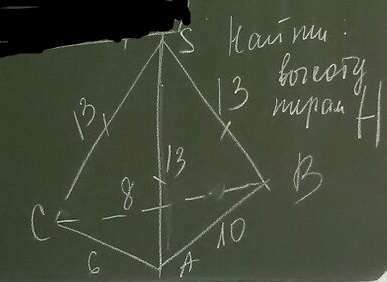 S
Найти:
высоту
пирам H
13
13
13
8
C
B
6
A
10